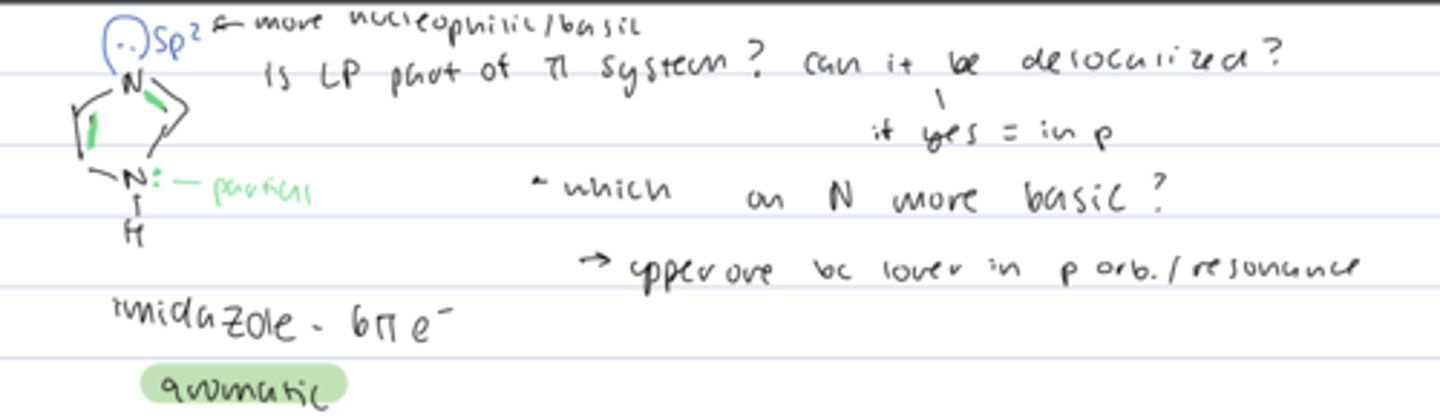 (..) Sp² ← more nucleophilic/basic
N
Is LP part of π system? can it be delocalized?
if yes = in p
N: –
H
- which on N more basic?
→ upper one bc lower in p orb./resonance
imidazole - 6π e⁻
aromatic